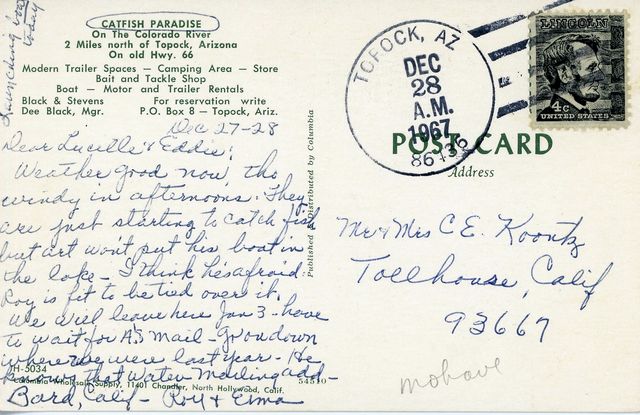 CATFISH PARADISE
On The Colorado River
2 Miles north of Topock, Arizona
On old Hwy. 66
Modern Trailer Spaces — Camping Area — Store
Bait and Tackle Shop
Boat — Motor and Trailer Rentals
Black & Stevens For reservation write
Dee Black, Mgr. P.O. Box 8 - Topock, Ariz.
Launching boat
today
Dec 27-28
Dear Lucille & Eddie;
Weather good now, tho
windy in afternoons. They
are just starting to catch fish
but art won't put his boat in
the lake - I think he's afraid.
Roy is fit to be tied over it.
We will leave here Jan 3 - have
to wait for A's mail - Go on down
where we were last year - He
knows that Water mailing add -
Bard, Calif - Roy & Elma
H-5034
Columbia Wholesale Supply, 11401 Chandler, North Hollywood, Calif. 54510
Published & Distributed by Columbia
TOPOCK, AZ
DEC
28
A.M.
1967
86436
LINCOLN
4c
UNITED STATES
POST CARD
Address
Mr & Mrs C E. Koontz
Tollhouse, Calif
93667
mohave